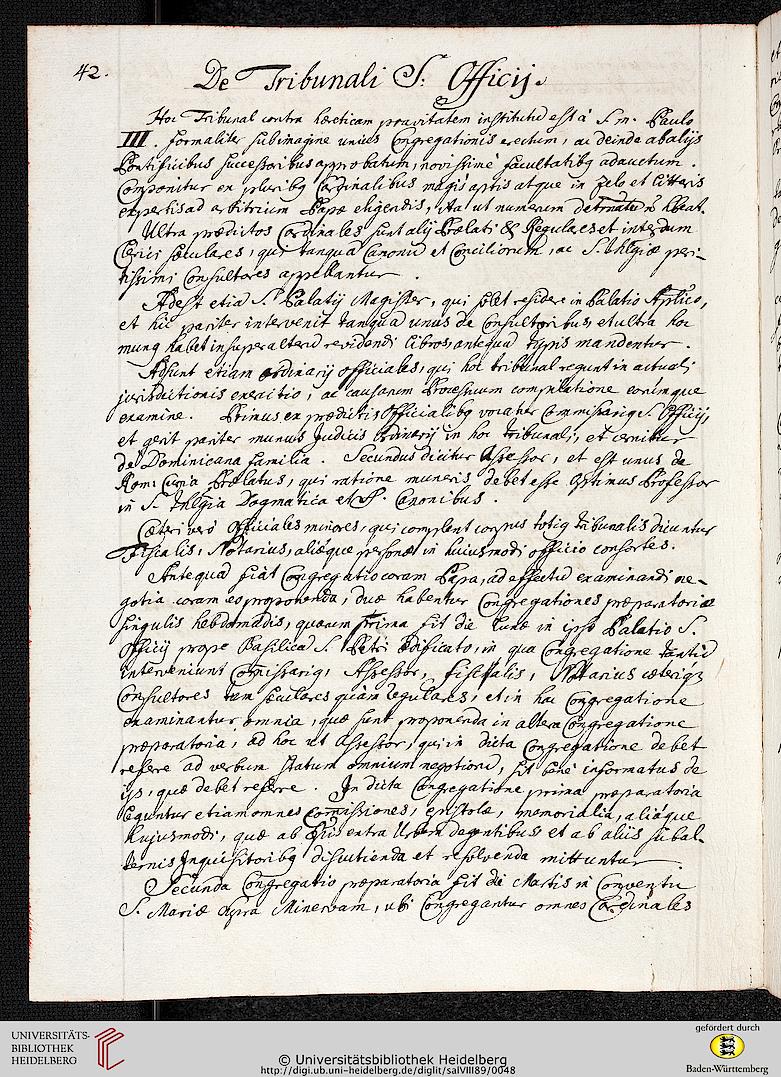 42.
De Tribunali S. Officij.
Hoc Tribunal contra hæreticam pravitatem institutū est à S. m. Paulo
III. formaliter sub imagine unius Congregationis erectum, ac deinde ab alijs
Pontificibus successoribus approbatum, novissimè facultatibq adauctum.
Componitur ex pluribq Cardinalibus magis aptis atque in zelo et litteris
expertis ad arbitrium Papæ eligendis, ita ut numerum determinatū nō habeat.
Ultra prædictos Cardinales sunt alij Prælati & Regulares et interdum
Clerici sæculares, qui tanquā Canonū et Conciliorum, ac S. Thlgiæ peri-
tissimi Consultores appellantur.
Adest etiā S. Palatij Magister, qui solet residere in Palatio Aplico,
et hic pariter intervenit tanquā unus de Consultoribus, et ultra hoc
munq habet insuper alterū revidendi libros, antequā typis mandentur.
Adsunt etiam ordinarij officiales, qui hoc tribunal regunt in actuali
jurisdictionis exercitio, ac causarum Processuum compilatione eorumque
examine. Primus ex prædictis Officialibq vocatur Commissariq S. Officij,
et gerit pariter munus Judicis Ordinarij in hoc Tribunali, et cernitur
de Dominicana familia. Secundus dicitur Assessor, et est unus de
Rom: Curia Prælatus, qui ratione muneris debet esse optimus Professor
in S. Thlgia Dogmatica et SS. Canonibus.
Cæteri verò Officiales minores, qui complent corpus totiq tribunalis dicuntur
Fiscalis, Notarius, aliæque personæ in huiusmodi officio consortes.
Antequā fiāt Congregatio coram Papa, ad effectū examinandi ne-
gotia coram eo proponenda, duæ habentur Congregationes præparatoriæ
singulis hebdomadis, quarum prima fit die Lunæ in ipso Palatio S.
Officij prope Basilicā S. Petri ædificato, in qua Congregatione tantū
interveniunt Com̄issariq, Assessor, Fiscalis, Notarius cæteriq
Consultores tam sæculares quàm regulares, et in hac Congregatione
examinantur omnia, quæ sunt proponenda in altera Congregatione
præparatoria, ad hoc ut Assessor, qui in dicta Congregatione debet
referre ad verbum statum omnium negotiorū, sit benè informatus de
ijs, quæ debet referre. In dicta Congregatione prima præparatoria
leguntur etiam omnes Com̄issiones, epistolæ, memorialia, aliáque
hujusmodi, quæ ab Epis extra Urbem degentibus et ab aliis subal-
ternis Inquisitoribq discutienda et resolvenda mittuntur.
Secunda Congregatio præparatoria fit die Martis in Conventu
S. Mariæ supra Minervam, ubi Congregantur omnes Cardinales
UNIVERSITÄTS-
BIBLIOTHEK
HEIDELBERG
© Universitätsbibliothek Heidelberg
http://digi.ub.uni-heidelberg.de/diglit/salVIII89/0048
gefördert durch
Baden-Württemberg